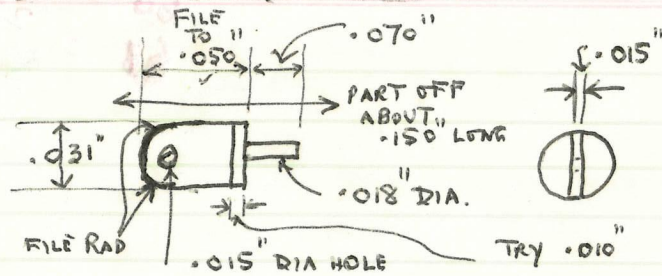 FILE
TO
.050"
.070"
.015"
PART OFF
ABOUT
.150" LONG
.031"
.018" DIA.
FILE RAD
.015" DIA HOLE
TRY .010"